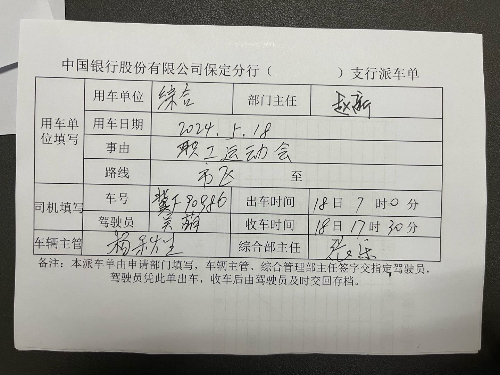 中国银行股份有限公司保定分行（ ）支行派车单
用车单位填写 用车单位 综合 部门主任
用车日期 2024.5.18
事由 职工运动会
路线 市 至
司机填写 车号 出车时间 18日7时0分
驾驶员 收车时间 18日17时30分
车辆主管 综合部主任
备注：本派车单由申请部门填写，车辆主管、综合管理部主任签字交指定驾驶员，
驾驶员凭此单出车，收车后由驾驶员及时交回存档。